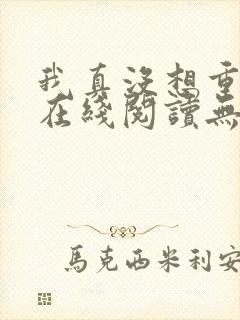 我真沒想重
在綫閱讀無
馬克西米利安